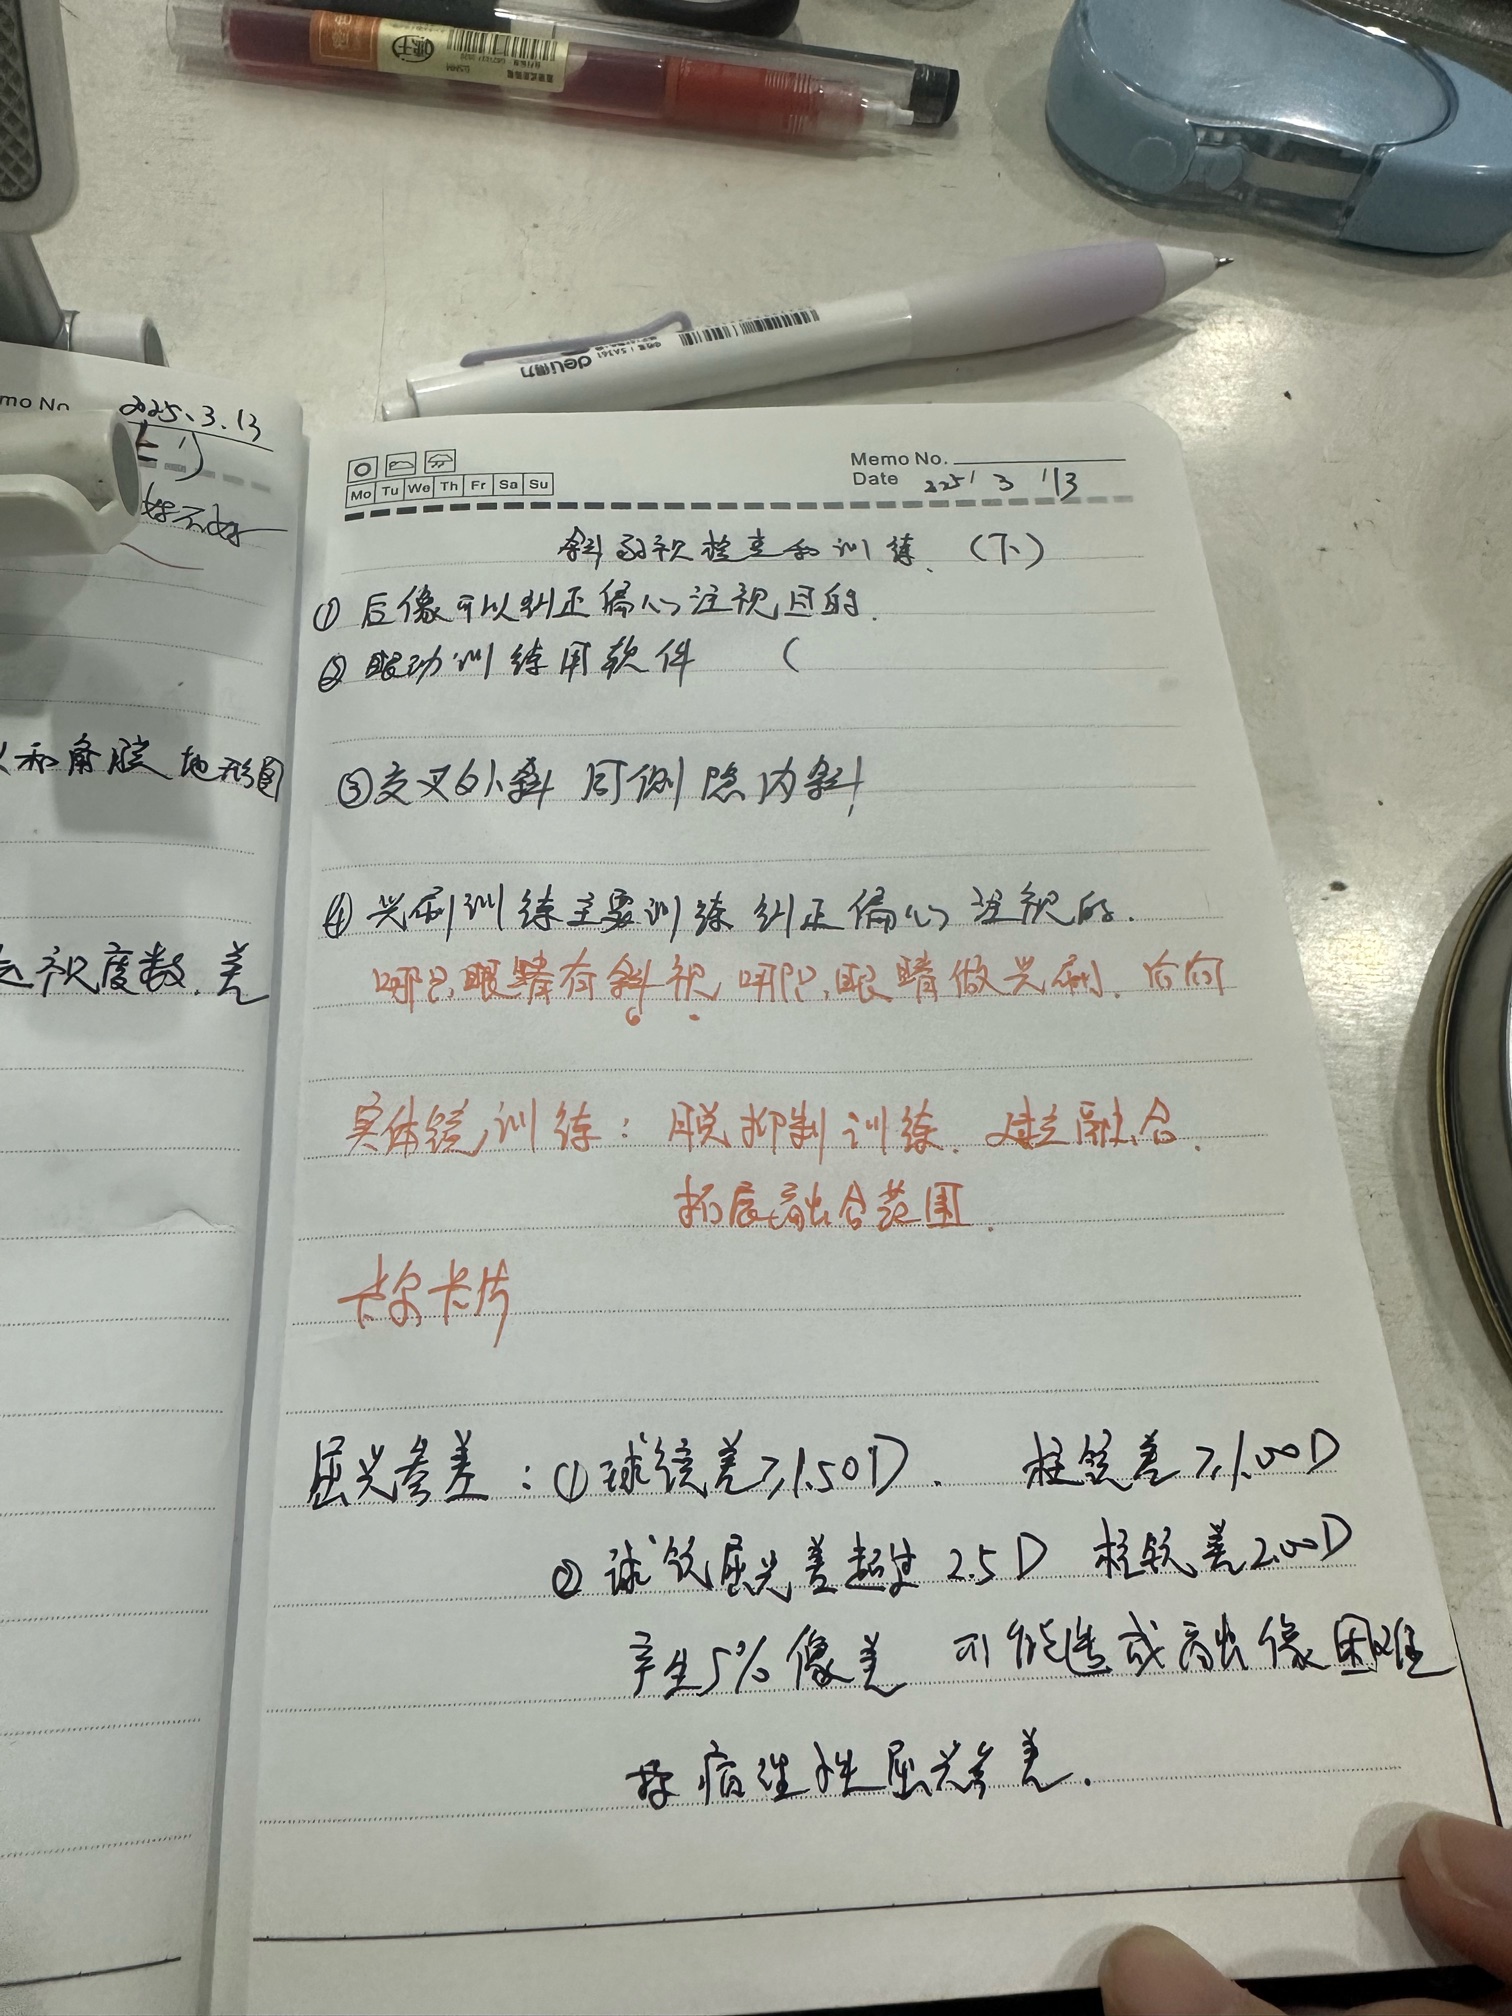 deli得力
2025.3.13
Memo No.
Date 2025 3 13
Mo Tu We Th Fr Sa Su
斜弱视检查和训练.（下）
① 后像可以纠正偏心注视目的.
② 眼动训练用软件 （
③ 交叉外斜 同侧隐内斜
④ 光刷训练主要训练纠正偏心注视的.
哪只眼睛有斜视,哪只眼睛做光刷.
实体镜训练：脱抑制训练. 建立融合.
拓展融合范围.
卡尔卡片
屈光参差：①球镜差≥1.50D. 柱镜差≥1.00D
② 球镜屈光差超过2.5D 柱镜差2.00D
产生5%像差 可能造成融像困难
病理性屈光参差.
和角膜地形图
视度数.差